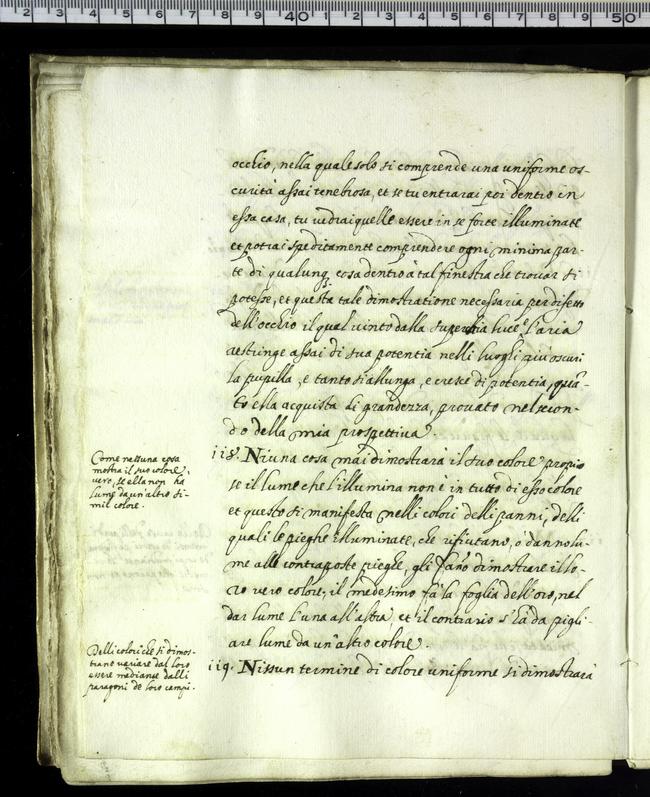 occhio, nella quale solo si comprende una uniforme os-
curità assai tenebrosa, et se tu entrarai poi dentro in
essa casa, tu vedrai quelle essere in se forte illuminate
et potrai speditamente comprendere ogni minima par-
te di qualunq. cosa dentro à tal finestra che trouar si
potesse, et questa tale dimostratione necessaria per difetto
dell'occhio il qual uinto dalla superchia luce è l'aria
restringe assai di sua potentia nelli luoghi più oscuri
la pupilla, e tanto si allunga, e cresce di potentia, quã-
to ella acquista di grandezza, prouato nel secon-
do della mia prospettiua.
Come nessuna cosa
mostra il suo colore
uero, se ella non ha
lume da un'altro si-
mil colore.
118. Niuna cosa mai dimostrarà il suo colore proprio
se il lume che l'illumina non è in tutto di esso colore
et questo si manifesta nelli colori delli panni, delli
quali le pieghe illuminate, che rifiutano, ò danno lu-
me alle contraposte pieghe, gli fano dimostrare il lo-
ro uero colore, il medesimo fà la foglia dell'oro, nel
dar lume l'una all'altra, et il contrario si fà da pigli-
are lume da un'altro colore.
Delli colori che si dimos-
trano uariare dal loro
essere mediante dalli
paragoni de loro campi.
119. Nissun termine di colore uniforme si dimostrarà